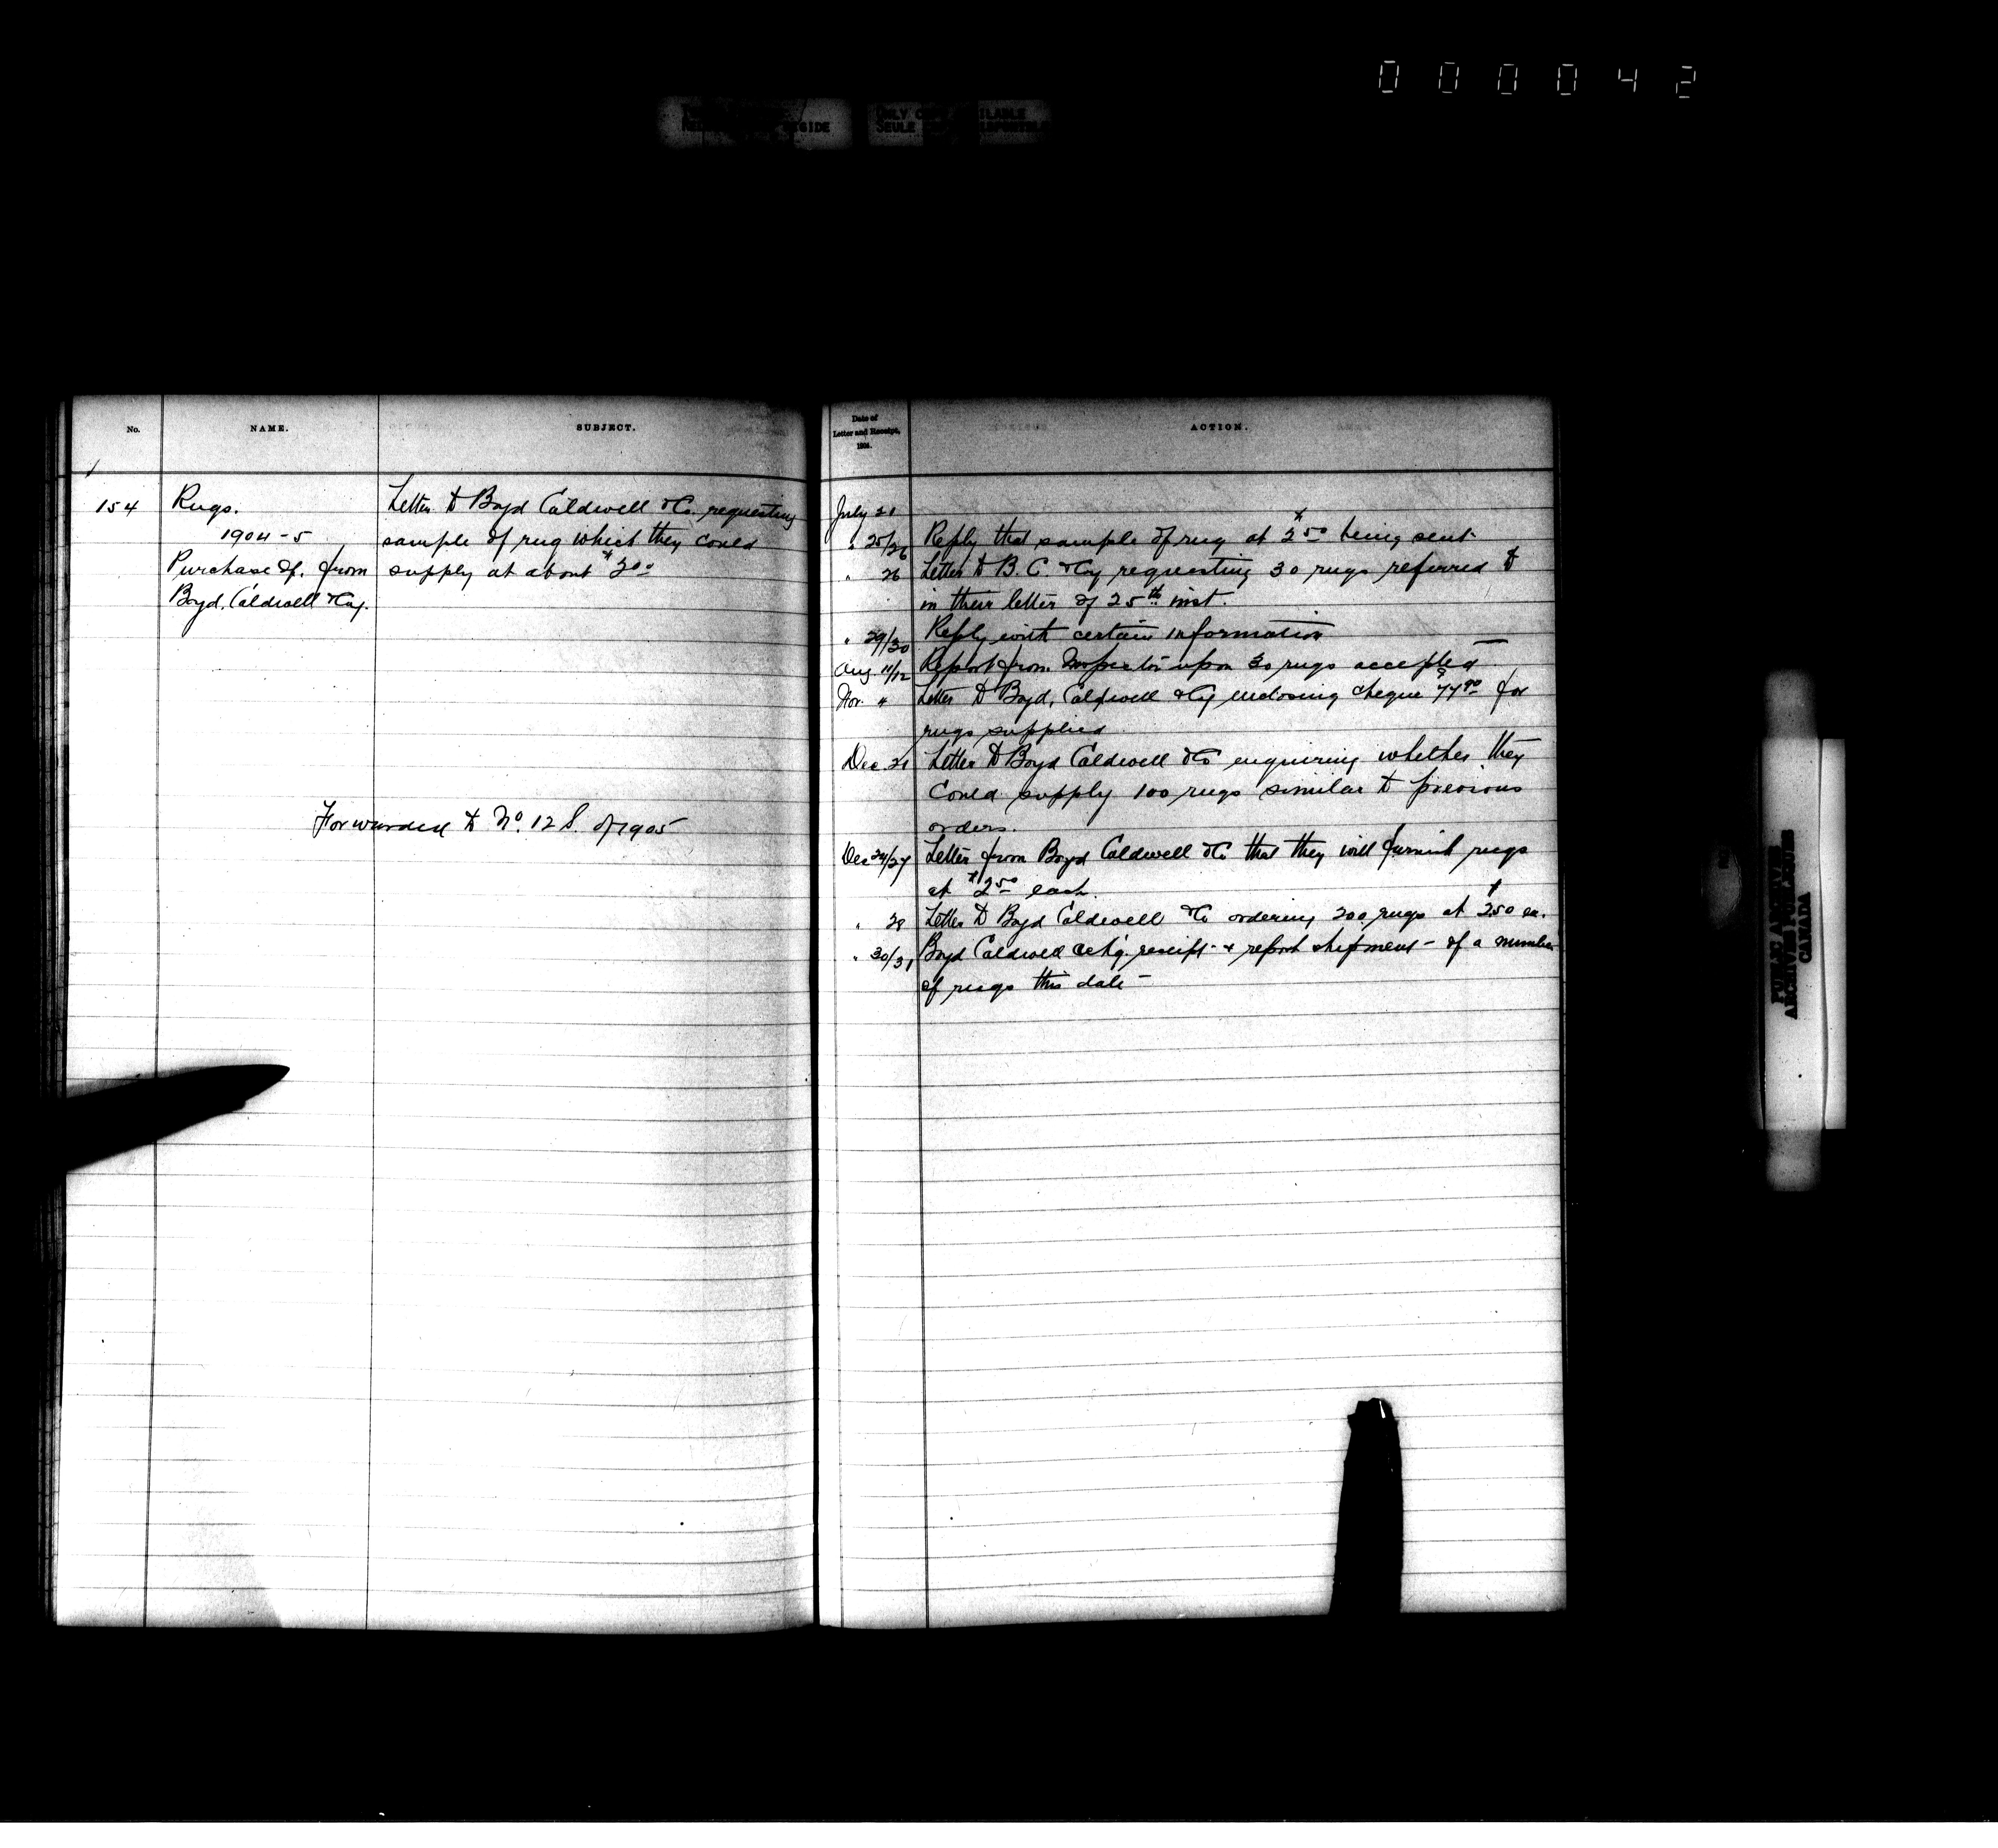 000042
ONLY
SEULE
No.
NAME.
SUBJECT.
154
Rugs.
1904-5
Purchase of. from
Boyd. Caldwell & Coy.
Letter to Boyd Caldwell & Co. requesting
sample of rug which they could
supply at about $3 00
Forwarded to No. 12 S. of 1905
Date of
Letter and Receipt,
1904.
ACTION.
July 21
" 25/26 Reply that sample of rug at $2 50 being sent
" 26 Letter to B. C. & Coy requesting 30 rugs referred to
in their letter of 25th inst.
" 29/30 Reply with certain information
Aug 11/12 Report from Inspector upon 30 rugs accepted
Nov. 4 Letter to Boyd, Caldwell & Cy enclosing cheque for
rugs supplied
Dec. 21 Letter to Boyd Caldwell & Co enquiring whether they
could supply 100 rugs similar to previous
orders.
Dec 24/27 Letter from Boyd Caldwell & Co that they will furnish rugs
at $2 50 each.
" 28 Letter to Boyd Caldwell & Co ordering 200 rugs at $2.50 ea.
" 30/31 Boyd Caldwell ack'g. receipt & report shipment of a number
of rugs this date
PUBLIC ARCHIVES
ARCHIVES PUBLIQUES
CANADA